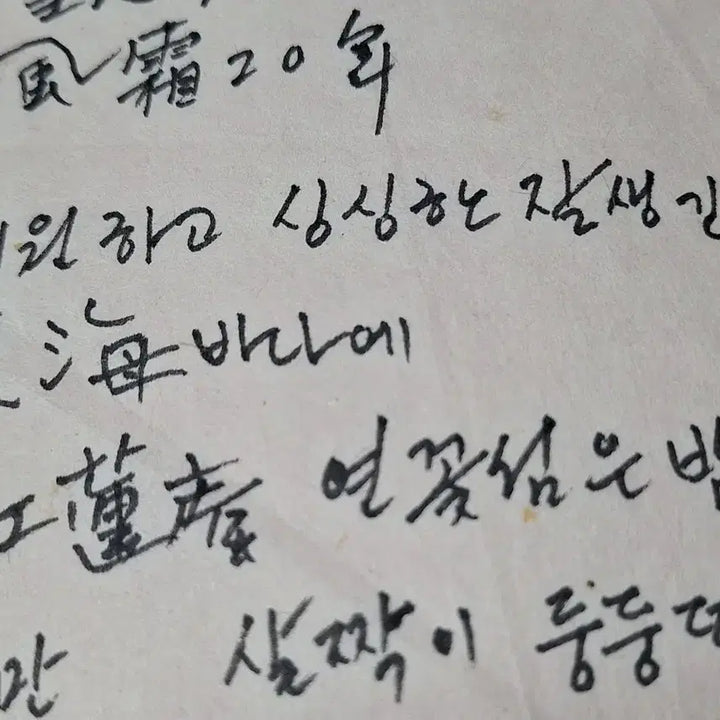 風霜20年
원하고 싱싱한 잘생긴
海바다에
蓮 연꽃섬은
살짝이 둥둥